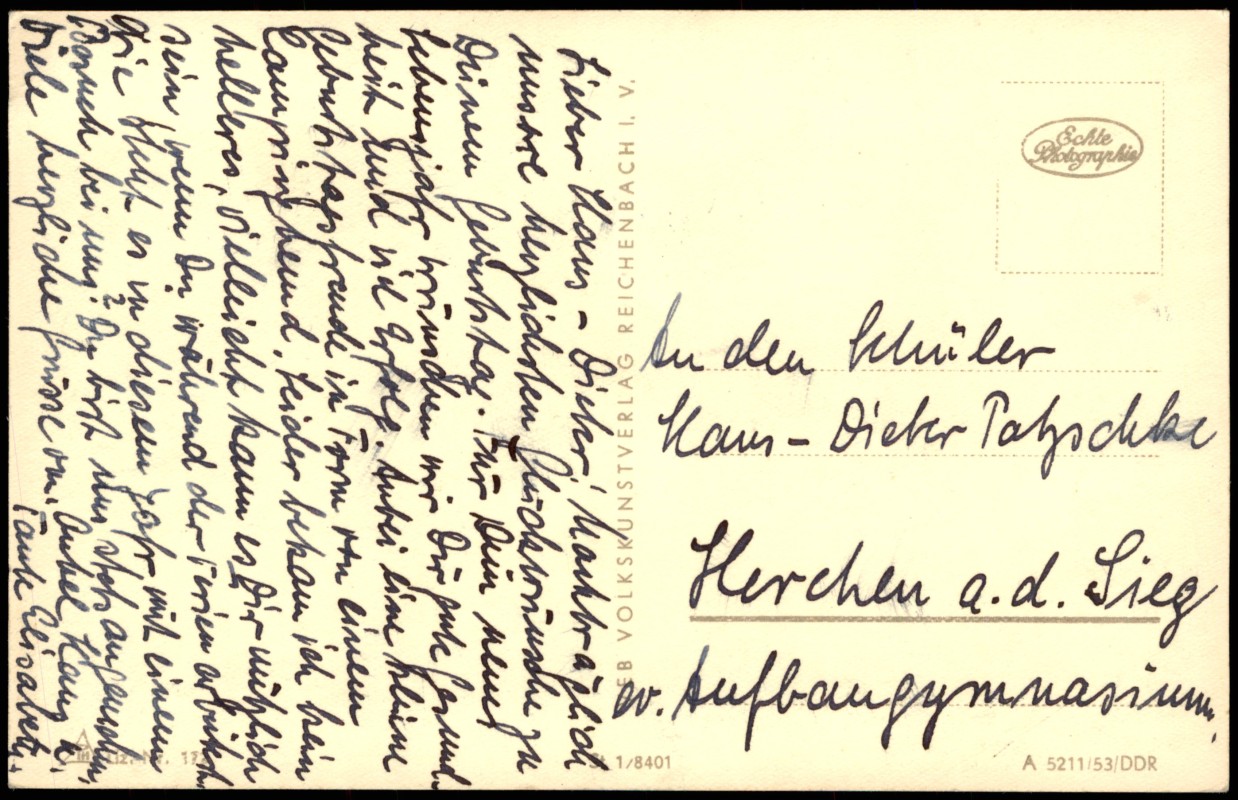 Lieber Hans-Dieter! Nachträglich
unsere herzlichsten Glückwünsche zu
Deinem Geburtstag. Für Dein neues
Lebensjahr wünschen wir Dir gute Gesund-
heit und viel Erfolg. Anbei eine kleine
Geburtstagsfreude in Form von einem
Campinghemd. Leider bekam ich kein
helleres, vielleicht kann es Dir nützlich
sein, wenn Du während der Ferien arbeitest.
Wie steht es in diesem Jahr mit einem
Besuch bei uns? Du bist uns stets angenehm.
Viele herzliche Grüsse von Onkel Hans u.
Tante Elisabeth.
VEB VOLKSKUNSTVERLAG REICHENBACH I. V.
Echte
Photographie
An den Schüler
Hans-Dieter Patzschke
Herchen a. d. Sieg
ev. Aufbaugymnasium.
Liz.-Nr.
1/8401
A 5211/53/DDR